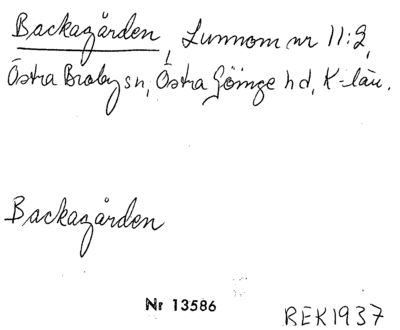 Backagården, Lunnom nr 11:2,
Östra Broby sn, Östra Göinge hd, K-län.
Backagården
Nr 13586
BEK1937